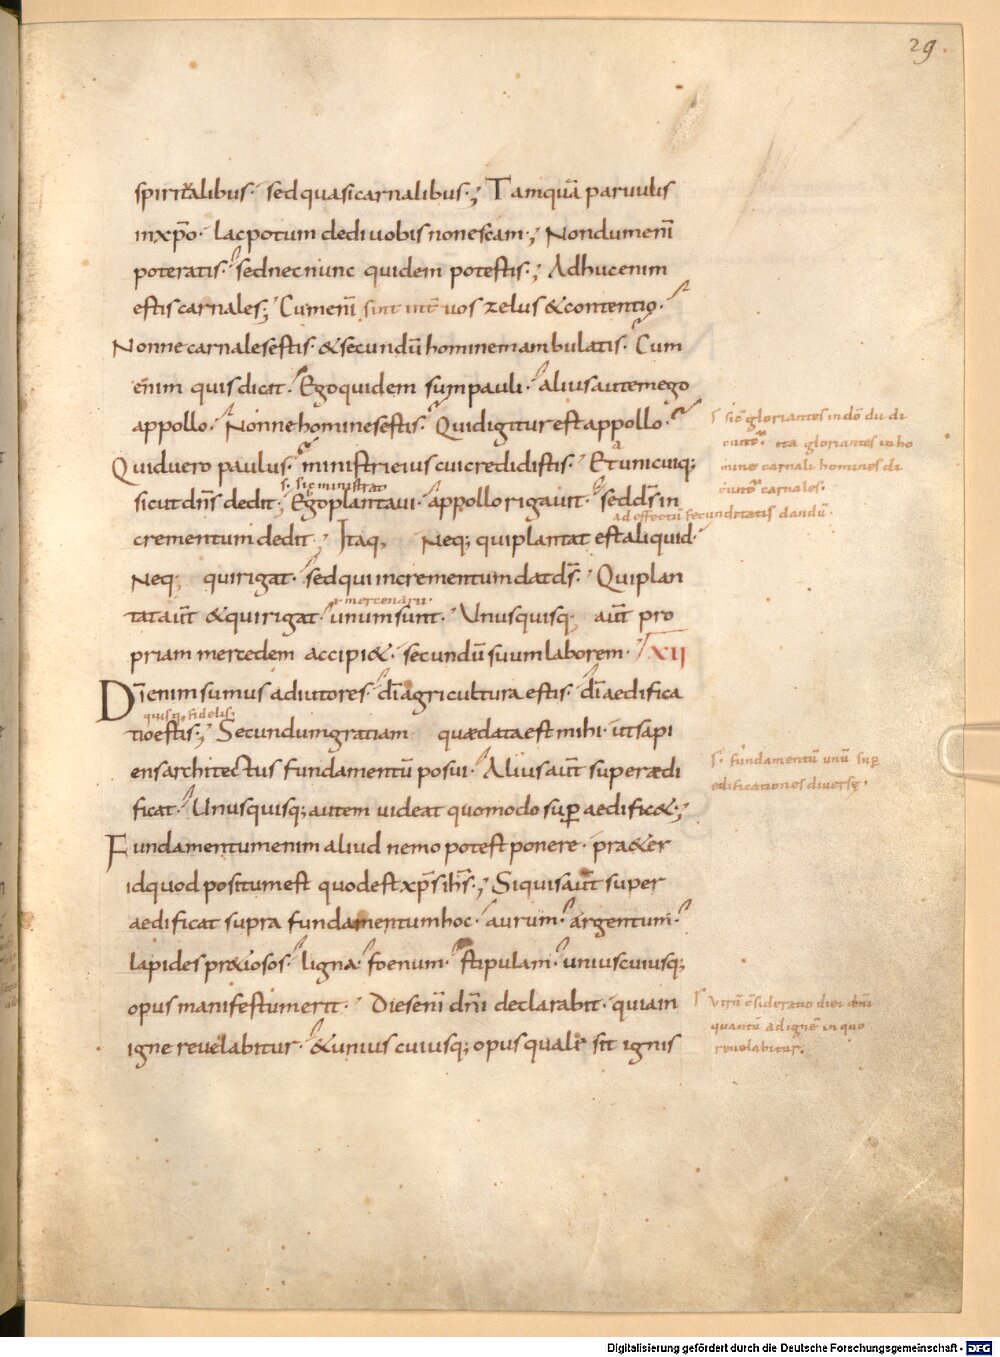 29
spiritalibus· sed quasi carnalibus·; Tamquā paruulis
inxp̄o· lac potum dedi uobis non escam·; Nondum enī
poteratis· sed nec nunc quidem potestis·; Adhuc enim
estis carnales; Cum enī sint int̄ uos zelus & contentio·
Nonne carnales estis· & secundū hominem ambulatis· Cum
enim quis dicat· Ego quidem sum pauli· alius autem ego
appollo· Nonne homines estis· Quid igitur est appollo·
sic̄ gloriantes in dō du di
cunt̄· ita gloriantes in ho
mine carnali homines di
cunt̄ carnales·
Quid uero paulus· ministri eius cui credidistis· Et unicuiq;
s· sic ministrat
sicut dn̄s dedit; Ego plantaui· appollo rigauit· sed ds̄ in
ad effectū fecunditatis dandū·
crementum dedit; Itaq, Neq; qui plantat est aliquid·
Neq; qui rigat· sed qui incrementum dat ds̄· Qui plan
mercenarii·
tat aūt & qui rigat· unum sunt· Unusquisq; aūt pro
priam mercedem accipi&· secundū suum laborem· XII
Dī enim sumus adiutores· dī agricultura estis· dī aedifica
quisq, fidelis·
tio estis·; Secundum gratiam quae data est mihi· ut sapi
ens architectus fundamentū posui· Alius aūt superaedi
s· fundamentū unū sup̄
edificationes diuersę·
ficat· Unusquisq; autem uideat quomodo sup̄ aedific&·;
Fundamentum enim aliud nemo potest ponere· pra&er
id quod positum est quod est xp̄s ihs̄·; Siquis aūt super
aedificat supra fundamentum hoc· aurum· argentum·
lapides pr&iosos· ligna· foenum· stipulam· uniuscuiusq;
opus manifestum erit· Dies enī dn̄i declarabit· quia in
quantū ad ignē in quo
reuelabitur·
igne reuelabitur· & uniuscuiusq; opus quale sit ignis
Digitalisierung gefördert durch die Deutsche Forschungsgemeinschaft - DFG